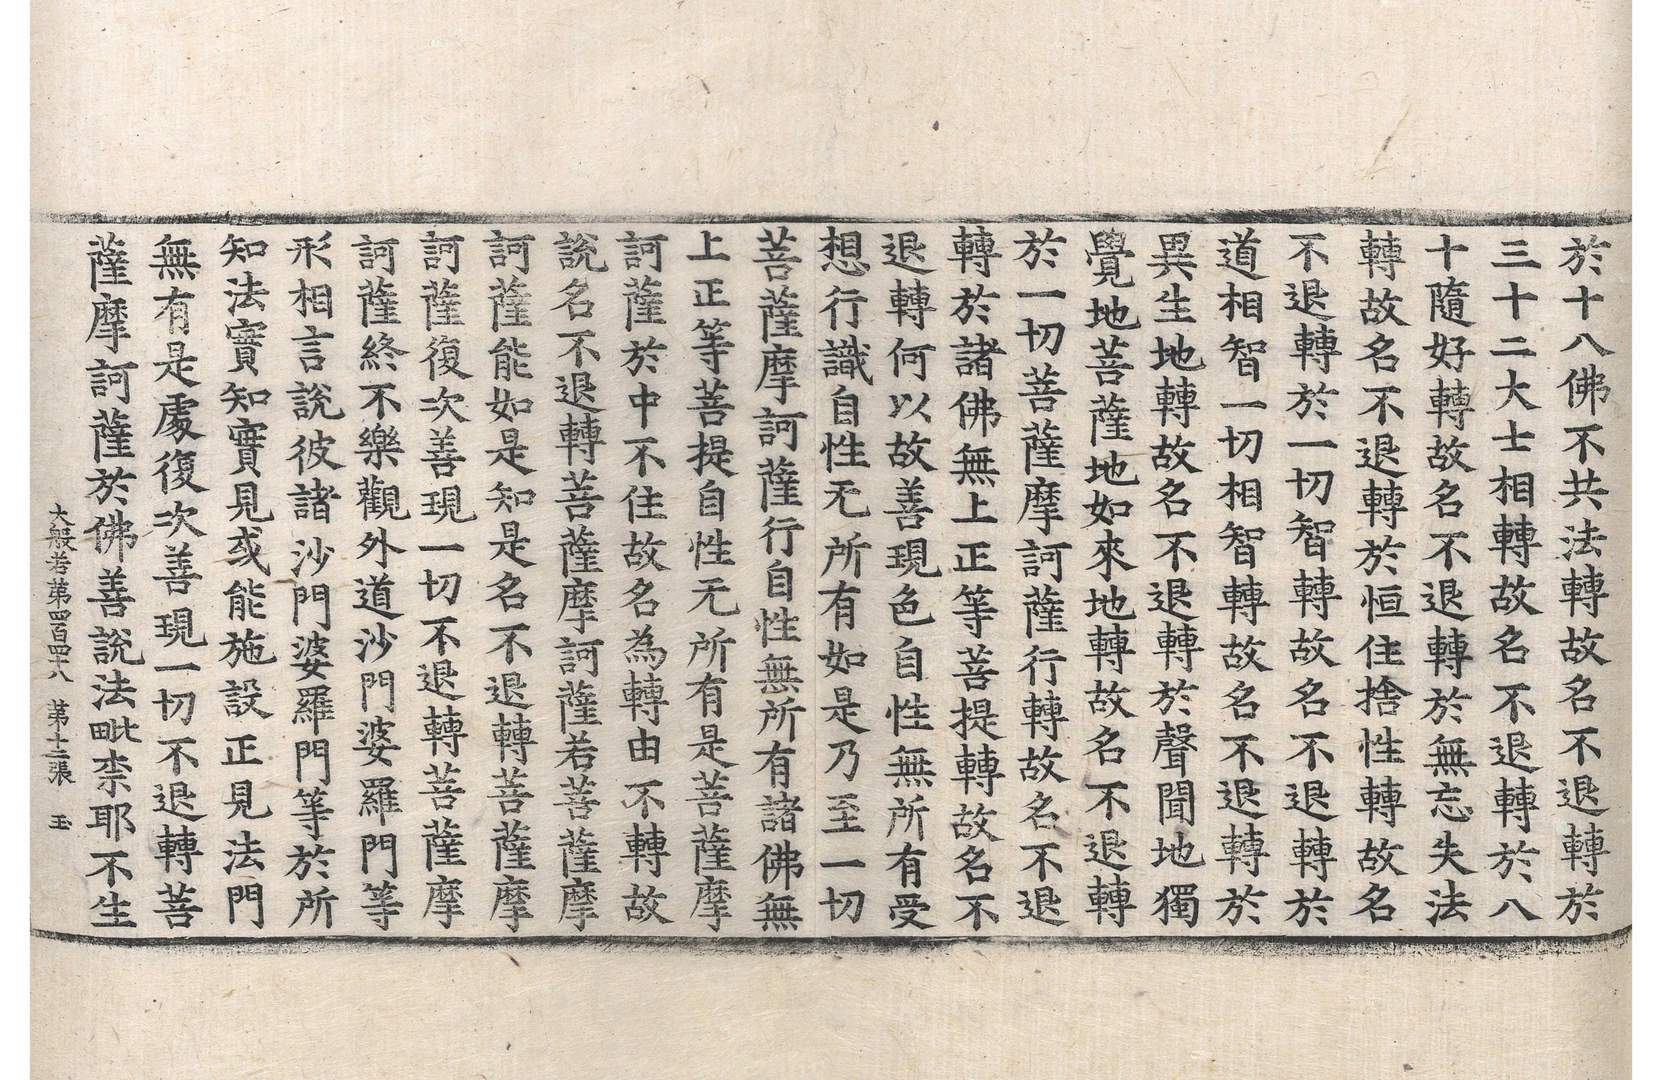 於十八佛不共法轉故名不退轉於
三十二大士相轉故名不退轉於八
十隨好轉故名不退轉於無忘失法
轉故名不退轉於恒住捨性轉故名
不退轉於一切智轉故名不退轉於
道相智一切相智轉故名不退轉於
異生地轉故名不退轉於聲聞地獨
覺地菩薩地如來地轉故名不退轉
於一切菩薩摩訶薩行轉故名不退
轉於諸佛無上正等菩提轉故名不
退轉何以故善現色自性無所有受
想行識自性无所有如是乃至一切
菩薩摩訶薩行自性無所有諸佛無
上正等菩提自性无所有是菩薩摩
訶薩於中不住故名為轉由不轉故
說名不退轉菩薩摩訶薩若菩薩摩
訶薩能如是知是名不退轉菩薩摩
訶薩復次善現一切不退轉菩薩摩
訶薩終不樂觀外道沙門婆羅門等
形相言說彼諸沙門婆羅門等於所
知法實知實見或能施設正見法門
無有是處復次善現一切不退轉菩
薩摩訶薩於佛善說法毗柰耶不生
大般若第四百四十八 第十三張 玉